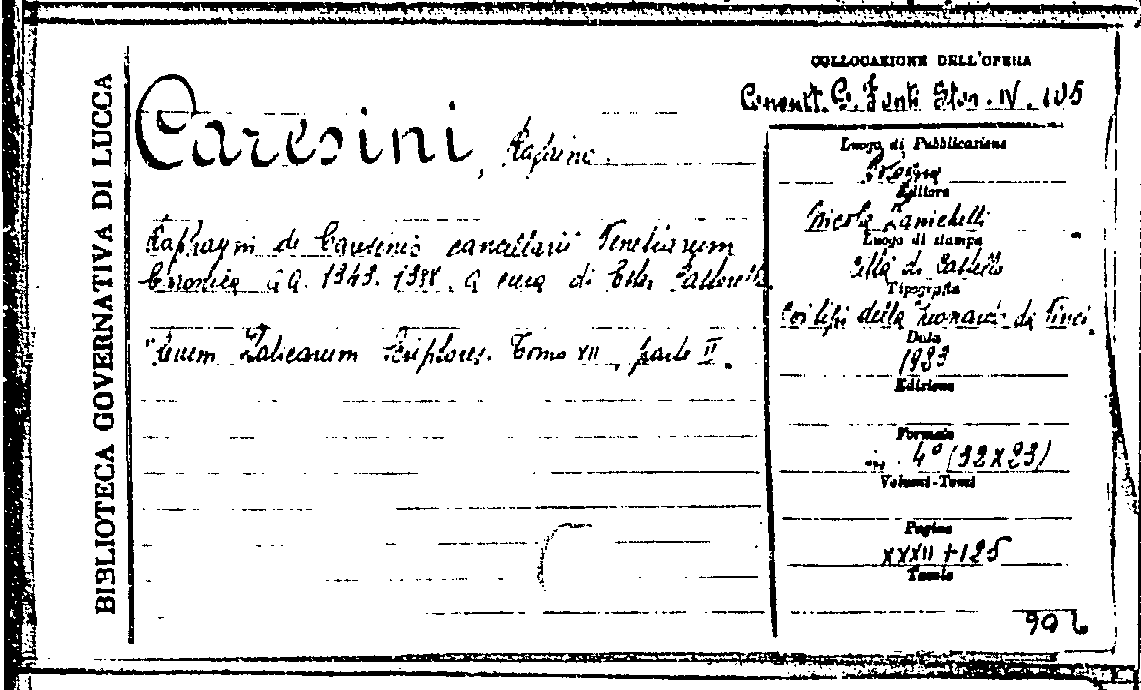 BIBLIOTECA GOVERNATIVA DI LUCCA
COLLOCAZIONE DELL'OPERA
Consult. G. Fonti Stor. IV. 105
Caresini, Rafaino.
Raphayni de Caresinis cancellarii Venetiarum
Chronica aa. 1343-1388. A cura di Ester Pastorello.
Rerum Italicarum Scriptores. Tomo XII, parte II.
Luogo di Pubblicazione
Bologna
Editore
Nicola Zanichelli
Luogo di stampa
Città di Castello
Tipografia
Coi tipi della Leonardo da Vinci.
Data
1923
Edizione
Formato
in 4° (32x23)
Volumi-Tomi
Pagine
XXXII + 125
Tavole